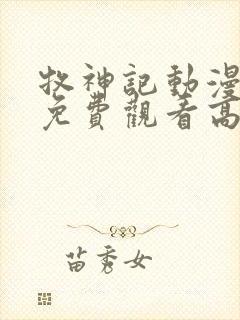 牧神記動漫
免費觀看高
苗秀女